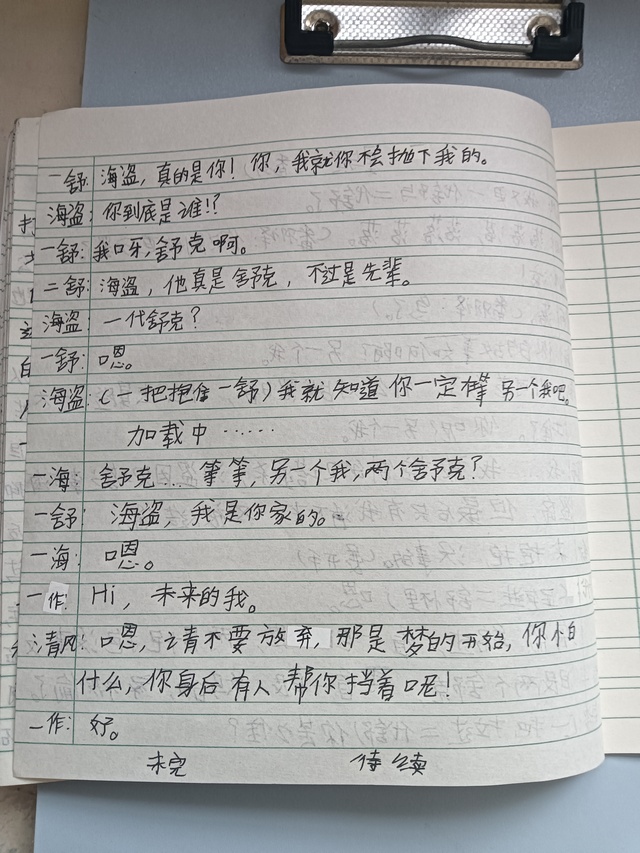 一舒：海盗，真的是你！你，我就你不会抛下我的。
海盗：你到底是谁！？
一舒：我呀，舒克啊。
二舒：海盗，他真是舒克，不过是先辈。
海盗：一代舒克？
一舒：嗯。
海盗：（一把抱住一舒）我就知道你一定 另一个我吧。
加载中……
一海：舒克…等等，另一个我，两个舒克？
一舒：海盗，我是你家的。
一海：嗯。
一作：Hi，未来的我。
清风：嗯，请不要放弃，那是梦的开始，你怕
什么，你身后有人帮你挡着呢！
一作：好。
未完 待续